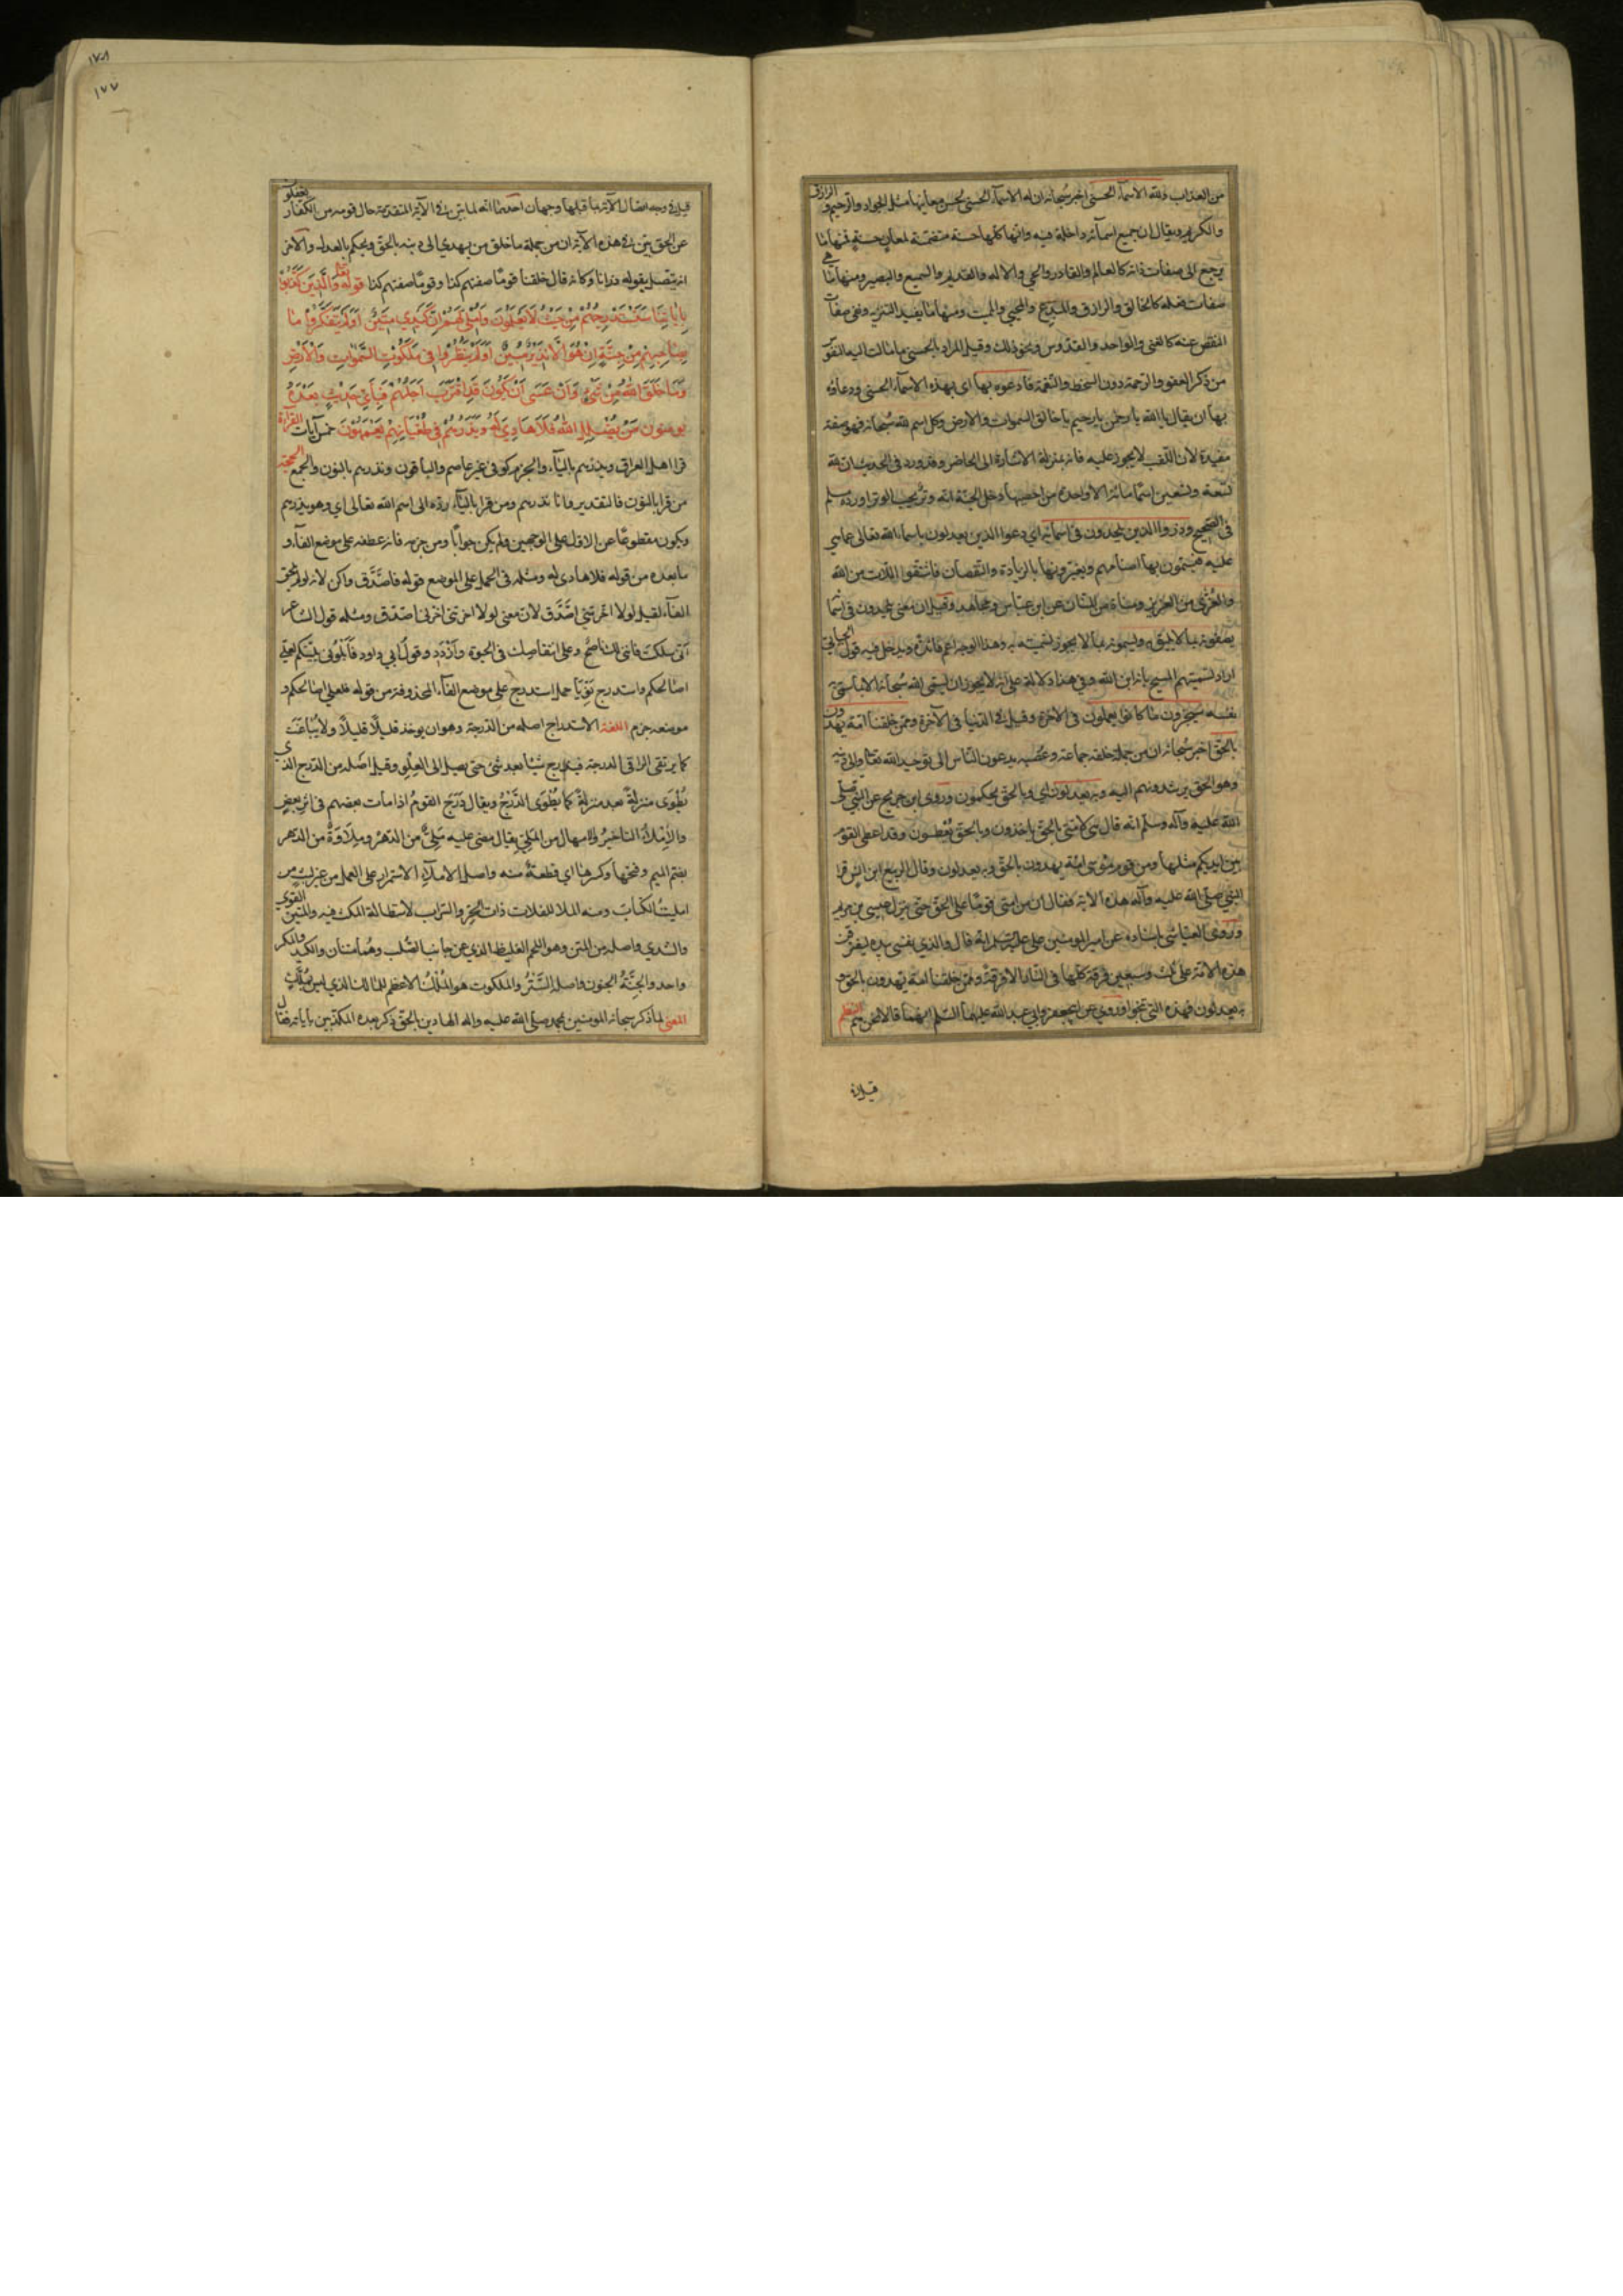 من العذاب ولله الاسماء الحسنى اخبر سبحانه ان له الاسماء الحسنى لحسن معانيها مثل الجواد والرحيم و الرازق
والكريم ويقال ان جميع اسمائه داخلة فيه وانها كلها حسنة متضمنة لمعان حسنة فمنها ما
يرجع الى صفات ذاته كالعالم والقادر والحي والاله والقديم والسميع والبصير ومنها ما هي
صفات فعله كالخالق والرازق والمبدع والمحيي والمميت ومنها ما يفيد التنزيه ونفي صفات
النقص عنه كالغني والواحد والقدوس ونحو ذلك وقيل المراد بالحسنى ما مالت اليه النفوس
من ذكر العفو والرحمة دون السخط والنقمة فادعوه بها اي بهذه الاسماء الحسنى ودعاؤه
بها ان يقال يا الله يا رحمن يا رحيم يا خالق السموات والارض وكل اسم لله سبحانه فهو صفة
مفيدة لان اللقب لا يجوز عليه فانه بمنزلة الاشارة الى الحاضر وقد ورد في الحديث ان لله
تسعة وتسعين اسما مائة الا واحدة من احصيها دخل الجنة انه وتر يحب الوتر اورده مسلم
في الصحيح وذروا الذين يلحدون في اسمائه اي دعوا الذين يعدلون باسماء الله تعالى عما هي
عليه فيسمون بها اصنامهم ويغيرونها بالزيادة والنقصان فاشتقوا اللات من الله
والعزى من العزيز ومناة من المنان عن ابن عباس ومجاهد وقيل ان معنى يلحدون في اسمائه
يصفونه بما لا يليق به ويسمونه بما لا يجوز تسميته به وهذا الوجه اعم فائدة ويدخل فيه قول الجبائي
اراد تسميتهم المسيح بانه ابن الله وفي هذا دلالة على انه لا يجوز ان يسمى الله سبحانه الا بما سمى به
نفسه سيجزون ما كانوا يعملون في الآخرة وقيل في الدنيا في الآخرة وممن خلقنا امة يهدون
بالحق اخبر سبحانه ان من جملة خلقه جماعة وعصبة يدعون الناس الى توحيد الله تعالى والى دينه
وهو الحق يرشدونهم اليه وبه يعدلون اي وبالحق يحكمون وروى ابن جريج عن النبي صلى
الله عليه وآله وسلم انه قال هي لامتي بالحق ياخذون وبالحق يعطون وقد اعطي القوم
بين ايديكم مثلها ومن قوم موسى امة يهدون بالحق وبه يعدلون وقال الربيع ابن انس قرا
النبي صلى الله عليه وآله هذه الآية فقال ان من امتي قوما على الحق حتى ينزل عيسى بن مريم
وروى العياشي باسناده عن امير المومنين علي عليه السلم انه قال والذي نفسي بيده ليفترقن
هذه الامة على ثلث وسبعين فرقة كلها في النار الا فرقة وممن خلقنا امة يهدون بالحق و
به يعدلون فهذه التي تنجوا وروي عن ابي جعفر وابي عبد الله عليهما السلم انهما قالا نحن هم النظم
قيل في
١٧٨
١٧٧
قيل في وجه اتصال الآية بما قبلها وجهان احدهما انه لما بين في الآية المتقدمة حال قومه من الكفار يعدلو
عن الحق بين في هذه الآية ان من جملة ما خلق من يهدي الى دينه بالحق ويحكم بالعدل والآخر
انه يتصل بقوله ذرانا وكانه قال خلقنا قوما صفتهم كذا وقوما صفتهم كذا قوله تعالى والذين كذبوا
بآياتنا سنستدرجهم من حيث لا يعلمون واملي لهم ان كيدي متين اولم يتفكروا ما
بصاحبهم من جنة ان هو الا نذير مبين اولم ينظروا في ملكوت السموات والارض
وما خلق الله من شيء وان عسى ان يكون قد اقترب اجلهم فباي حديث بعده
يومنون من يضلل الله فلا هادي له ويذرهم في طغيانهم يعمهون خمس آيات القراءة
قرا اهل العراق ويذرهم بالياء والجزم كوفي غير عاصم والباقون ونذرهم بالنون والجمع الحجة
من قرا بالنون فالتقدير وانا نذرهم ومن قرا بالياء رده الى اسم الله تعالى اي وهو يذرهم
ويكون مقطوعا عن الاول على الوجهين ولم يكن جوابا ومن جزمه فانه عطفه على موضع الفاء و
ما بعده من قوله فلا هادي له ومثله في الحمل على الموضع قوله فاصدق واكن لانه لو لم يلحق
الفاء لقيل لولا اخرتني اصدق لان معنى لولا اخرتني اخرني اصدق ومثله قول الشاعر
انى سلكت فانني لك ناصح وعلى انتقاصك في الحيوة وازدد وقول ابي داود فابلوني بليتكم لعلي
اصالحكم واستدرج نويا حمل استدرج على موضع الفاء المحذوفة من قوله فلعلي اصالحكم و
موضعه جزم اللغة الاستدراج اصله من الدرجة وهو ان يوخذ قليلا قليلا ولا يباغت
كما يرتقي الراقي الدرجة فيتدرج شيئا بعد شئ حتى يصل الى العلو وقيل اصله من الدرج الذي
يطوى منزلة بعد منزلة كما يطوى الدرج ويقال درج القوم اذا مات بعضهم في اثر بعض
والاملاء التاخير والامهال من الملي يقال مضى عليه ملي من الدهر وملاوة من الدهر
بضم الميم وفتحها وكسرها اي قطعة منه واصل الاملاء الاستمرار على العمل من غير لبث من
امليت الكتاب ومنه الملا للفلات ذات الحر والسراب لاستطالة المكث فيه والمتين القوي
والشدي واصله من المتن وهو اللحم الغليظ الذي عن جانب الصلب وهما متنان والكيد والمكر
واحد والجنة الجنون واصله الستر والملكوت هو الملك الاعظم للمالك الذي ليس بمملك
المعنى لما ذكر سبحانه المومنين بمحمد صلى الله عليه واله الهادين بالحق ذكر بعده المكذبين بآياته فقال